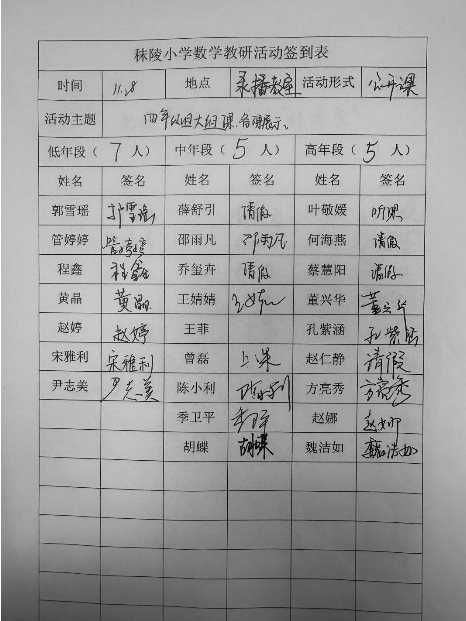 秣陵小学数学教研活动签到表
时间 11.28 地点 录播教室 活动形式 公开课
活动主题 四年级组大组课、展示。
低年段（7人） 中年段（5人） 高年段（5人）
姓名 签名 姓名 签名 姓名 签名
郭雪瑶 郭雪瑶 薛舒引 请假 叶敬媛 听课
管婷婷 管婷婷 邵雨凡 邵雨凡 何海燕 请假
程鑫 程鑫 乔玺卉 请假 蔡慧阳 请假
黄晶 黄晶 王婧婧 王婧婧 董兴华 董兴华
赵婷 赵婷 王菲 孔紫涵 孔紫涵
宋雅利 宋雅利 曾磊 上课 赵仁静 请假
尹志美 尹志美 陈小利 陈小利 方亮秀 方亮秀
季卫平 季卫平 赵娜 赵娜
胡蝶 胡蝶 魏洁如 魏洁如